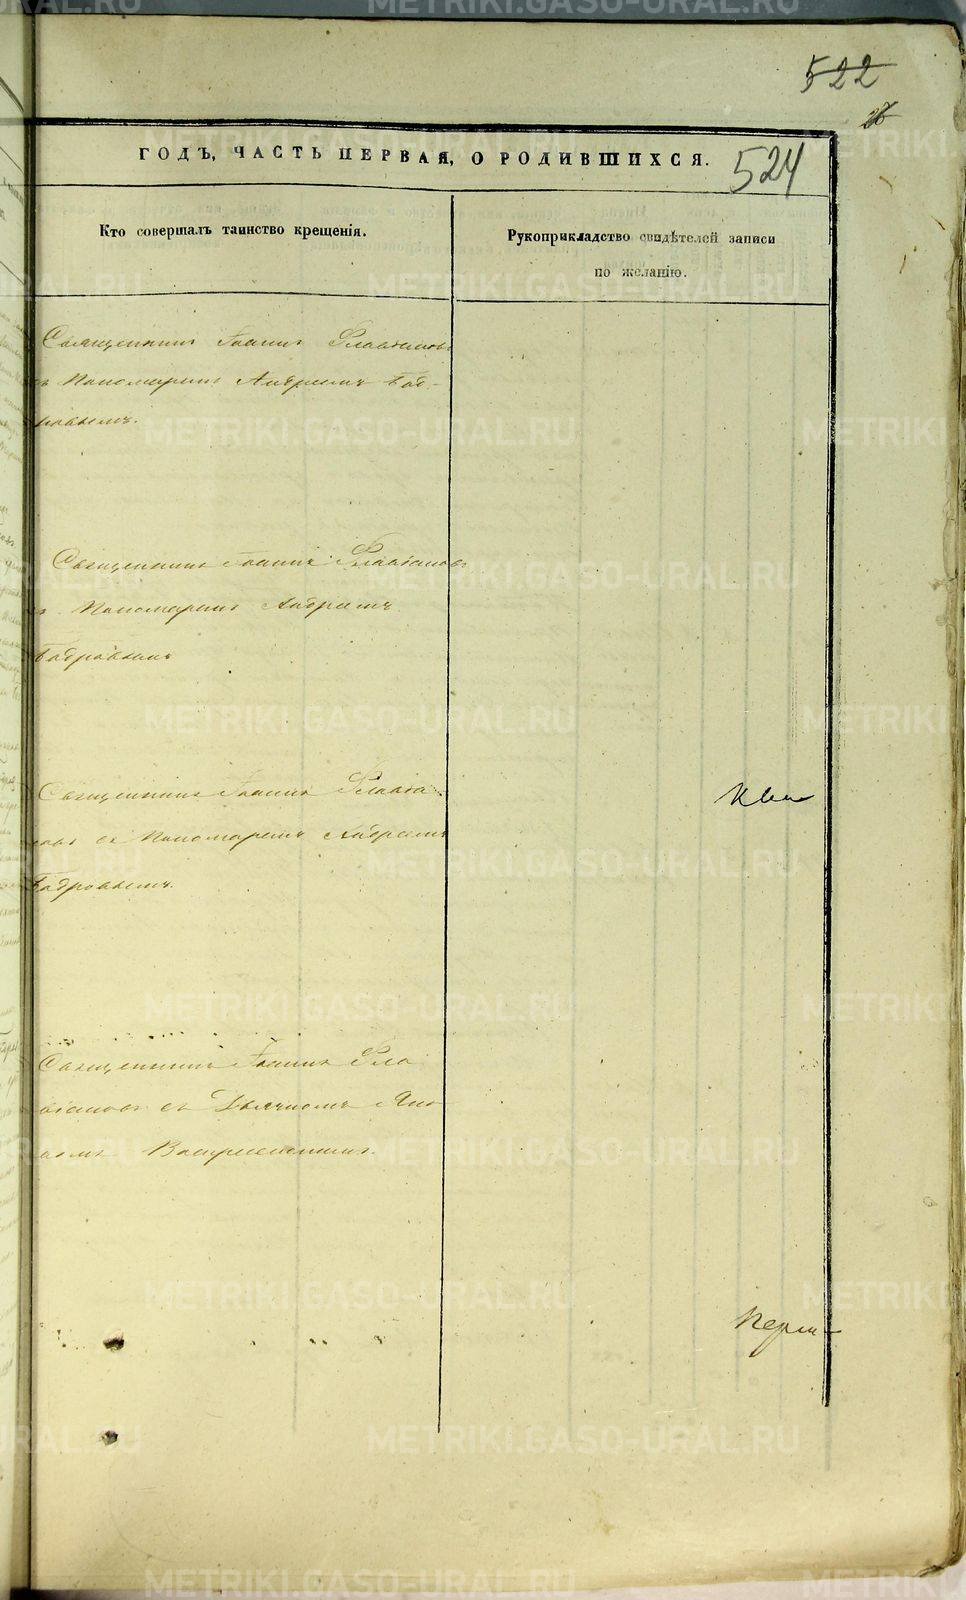 522
26
ГОДЪ, ЧАСТЬ ПЕРВАЯ, О РОДИВШИХСЯ.
524
Кто совершалъ таинство крещенія.
Рукоприкладство свидѣтелей записи
по желанію.
Священникъ Іоаннъ Флавіановъ
съ Пономаремъ Андреемъ Боб-
ровымъ.
Священникъ Іоаннъ Флавіановъ
съ Пономаремъ Андреемъ
Бобровымъ
Священникъ Іоаннъ Флавіа
новъ съ Пономаремъ Андреемъ
Бобровымъ.
Священникъ Іоаннъ Фла
віановъ съ Дьячкомъ
Воскресенскимъ.
METRIKI.GASO-URAL.RU